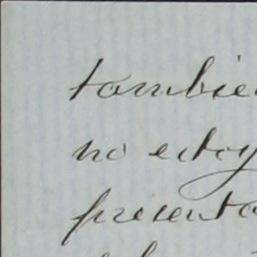 tambié
no estoy
presenta